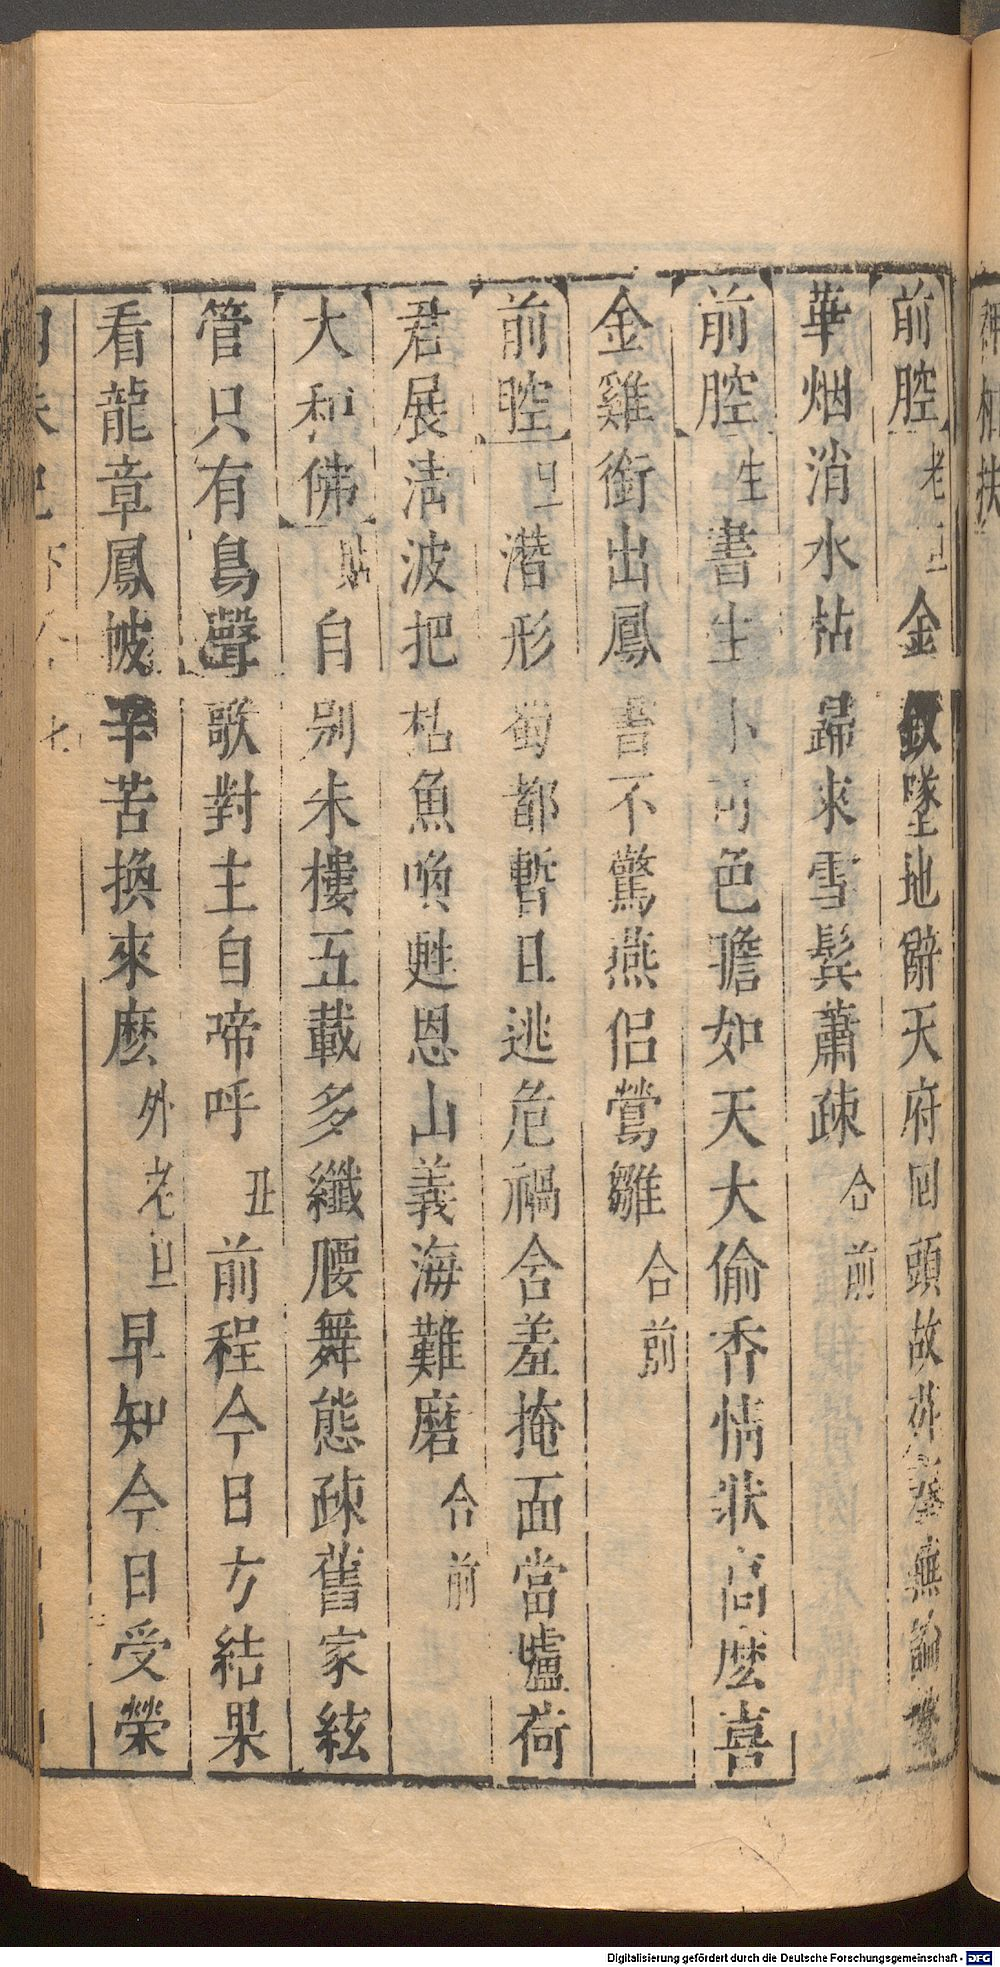 神相扶
前腔 老旦 金釵墜地辭天府回頭故苑蓁蕪論
華烟消水枯歸來雪鬂蕭疎 合前
前腔 生 書生卜可色膽如天大偷香情狀高麽喜
金雞銜出鳳書不驚燕侣鶯雛 合前
前腔 旦 潛形蜀都暫且逃危禍含羞掩面當壚荷
君展淸波把枯魚喚甦恩山義海難磨 合前
大和佛 貼 自别朱樓五載多纖腰舞態疎舊家絃
管只有鳥聲歌對主自啼呼 丑 前程今日方結果
看龍章鳳帔辛苦換來麽 外 老旦 早知今日受榮
Digitalisierung gefördert durch die Deutsche Forschungsgemeinschaft - DFG